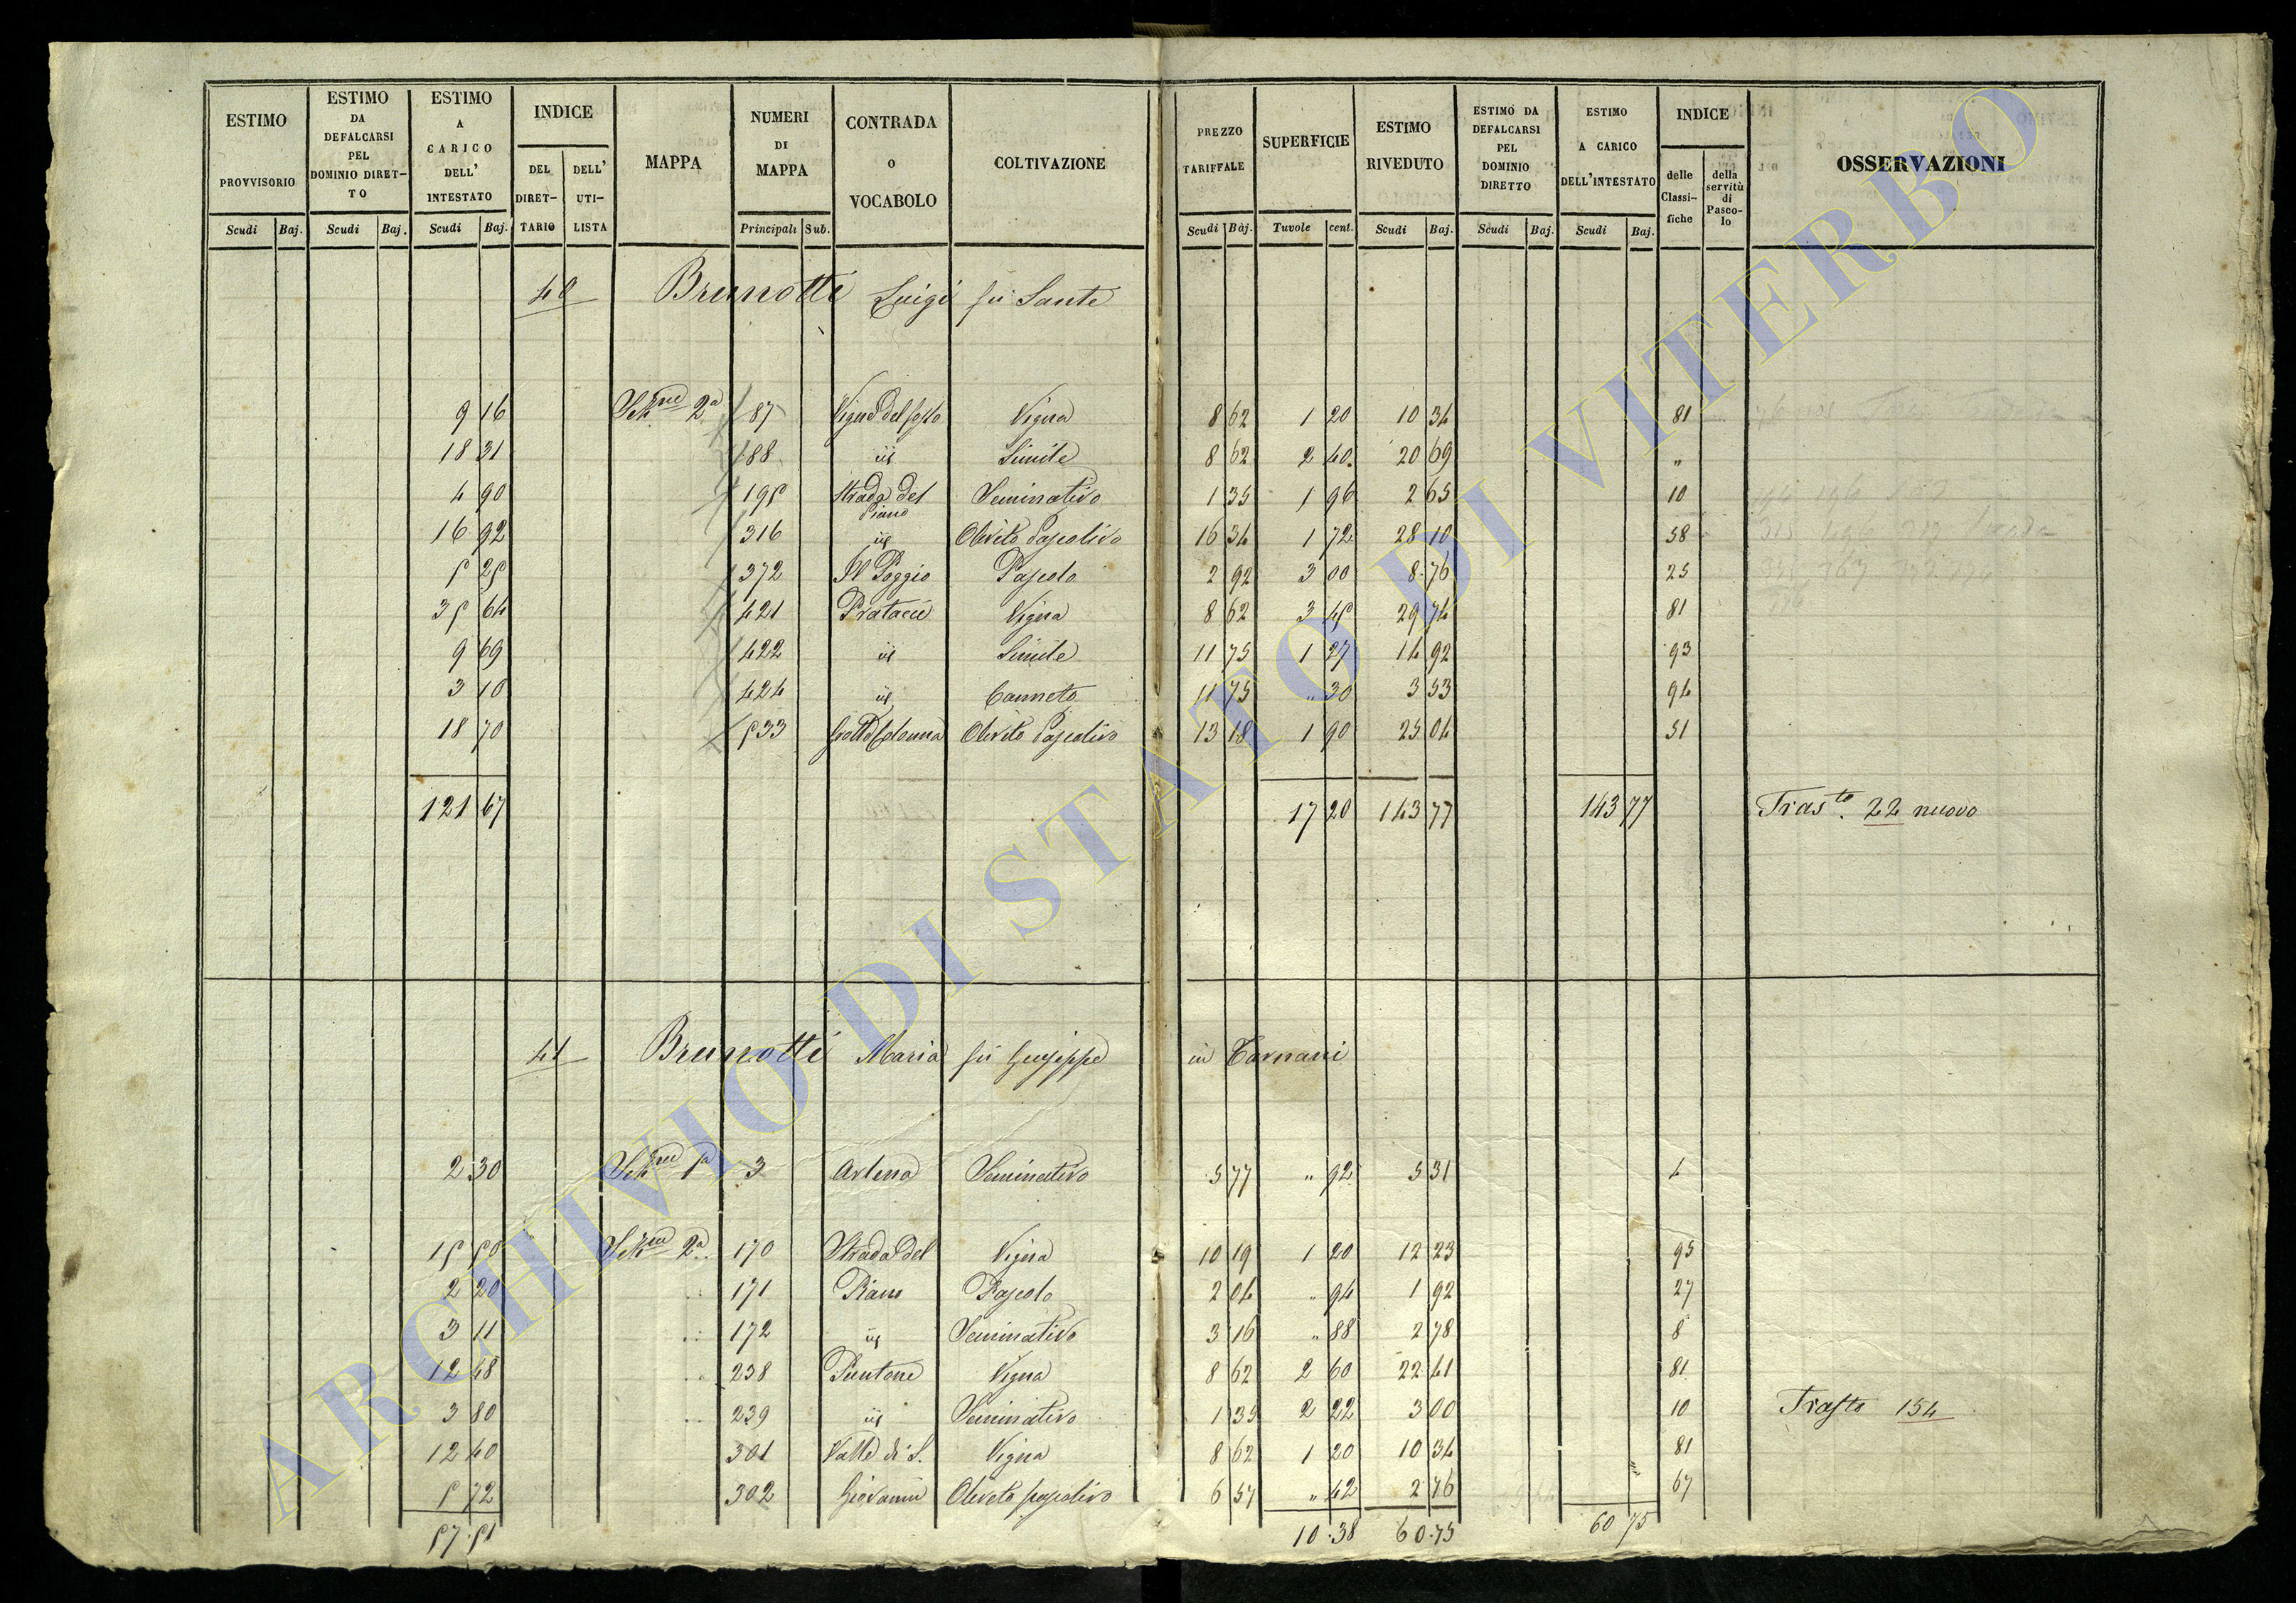 ESTIMO PROVVISORIO Scudi Baj.
ESTIMO DA DEFALCARSI PEL DOMINIO DIRET-TO Scudi Baj.
ESTIMO A CARICO DELL' INTESTATO Scudi Baj.
INDICE DEL DIRET-TARIO DELL' UTI-LISTA
MAPPA
NUMERI DI MAPPA Principali Sub.
CONTRADA O VOCABOLO
COLTIVAZIONE
PREZZO TARIFFALE Scudi Baj.
SUPERFICIE Tavole cent.
ESTIMO RIVEDUTO Scudi Baj.
ESTIMO DA DEFALCARSI PEL DOMINIO DIRETTO Scudi Baj.
ESTIMO A CARICO DELL'INTESTATO Scudi Baj.
INDICE delle Classi-fiche della servitù di Pasco-lo
OSSERVAZIONI
40 Brunotti Luigi fu Sante
9 16 Sez.ne 2a 187 Vigna del fosso Vigna 8 62 1 20 10 34 81
18 31 188 id Simile 8 62 2 40 20 69 "
4 90 195 Strada del Piano Seminativo 1 35 1 96 2 65 10
16 92 316 id Oliveto Pascolivo 16 34 1 72 28 10 58
5 25 372 Il Poggio Pascolo 2 92 3 00 8 76 25
35 64 421 Pratacci Vigna 8 62 3 45 29 74 81
9 69 422 id Simile 11 75 1 27 14 92 93
3 10 424 id Canneto 11 75 " 30 3 53 94
18 70 533 Oliveto Pascolivo 13 18 1 90 25 04 51
121 67 17 20 143 77 143 77 Tras.to 22 nuovo
41 Brunotti Maria fu Giuseppe in Tarnani
2 30 Sez.ne 1a 3 Artena Seminativo 5 77 " 92 5 31 4
15 50 Sez.ne 2a 170 Strada del Vigna 10 19 1 20 12 23 95
2 20 171 Piano Pascolo 2 04 " 94 1 92 27
3 11 172 id Seminativo 3 16 " 88 2 78 8
12 48 238 Puntone Vigna 8 62 2 60 22 41 81
3 80 239 id Seminativo 1 35 2 22 3 00 10 Trasto 154
12 40 301 Valle di S. Vigna 8 62 1 20 10 34 81
5 72 302 Giovanni Oliveto pascolivo 6 57 " 42 2 76 67
57 51 10 38 60 75 60 75
ARCHIVIO DI STATO DI VITERBO